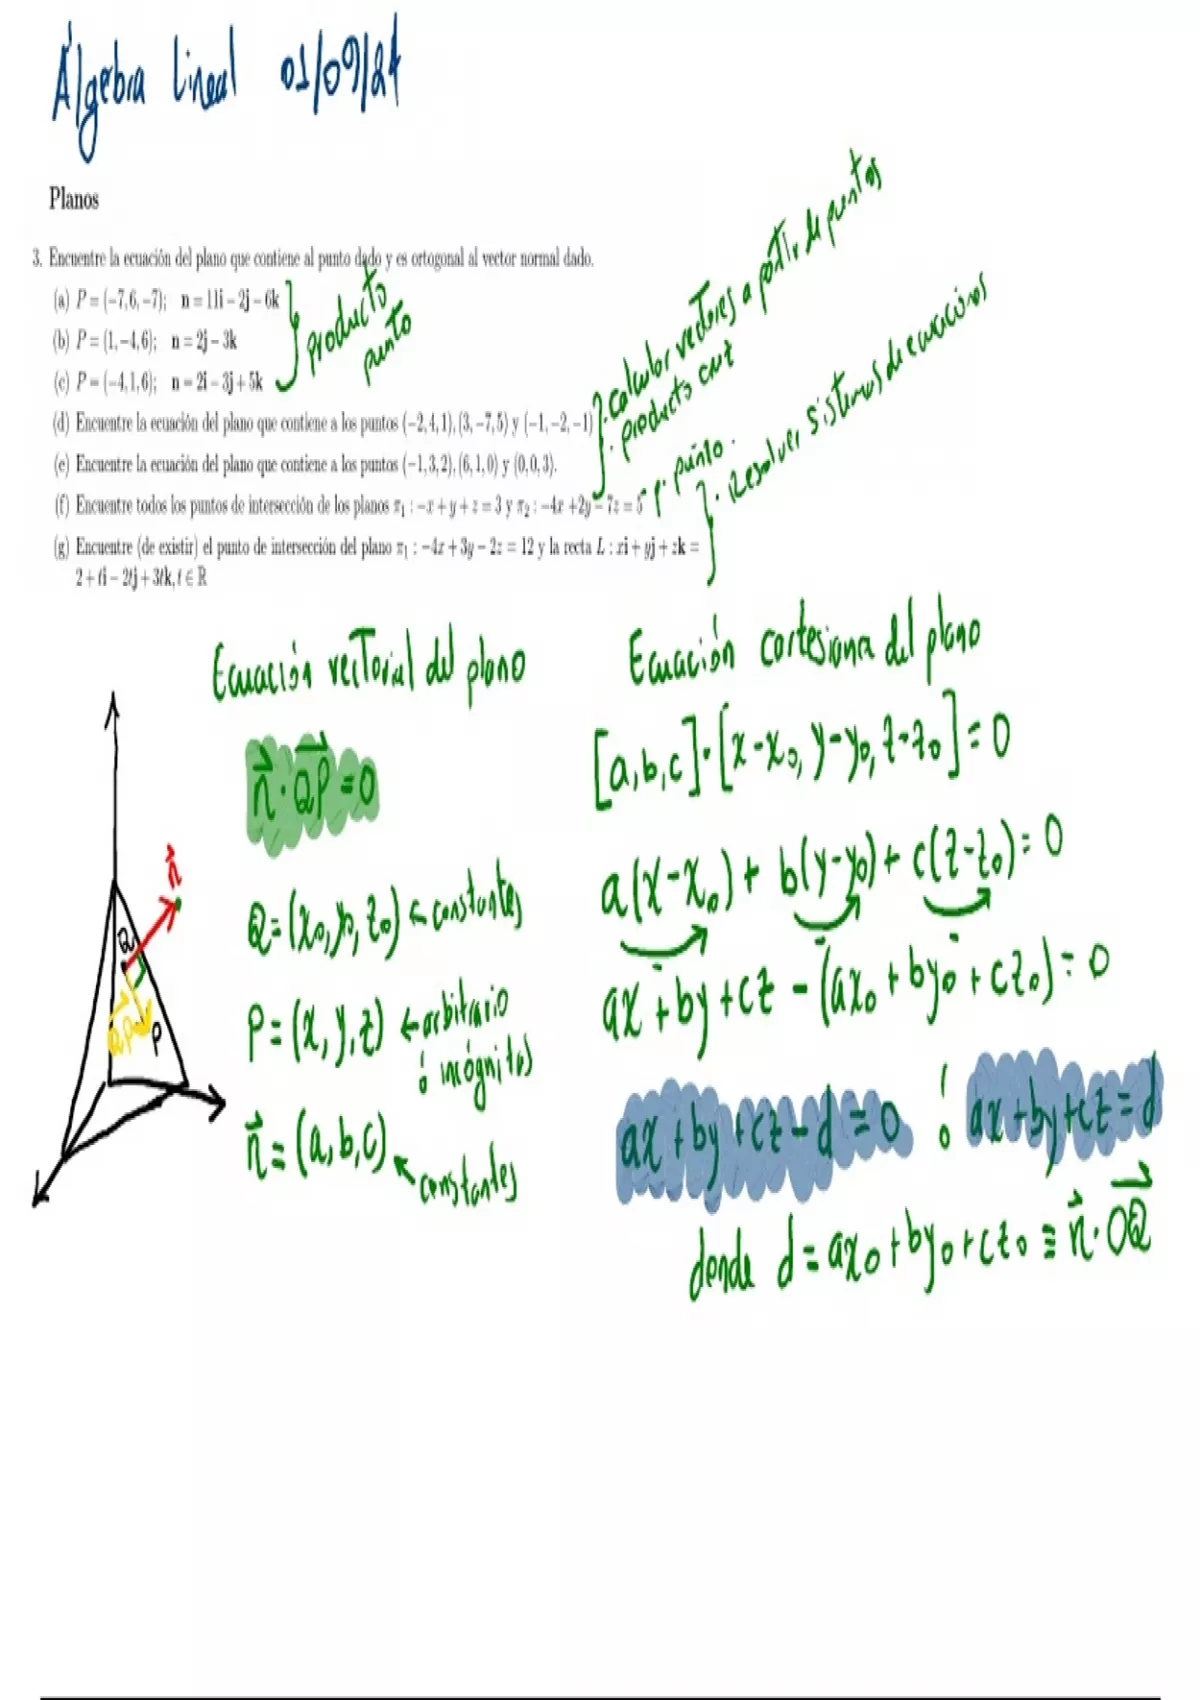 Álgebra Lineal 01/09/24
Planos
3. Encuentre la ecuación del plano que contiene al punto dado y es ortogonal al vector normal dado.
(a) P = (−7, 6, −7); n = 11i − 2j − 6k
(b) P = (1, −4, 6); n = 2j − 3k
(c) P = (−4, 1, 6); n = 2i − 3j + 5k
producto
punto
(d) Encuentre la ecuación del plano que contiene a los puntos (−2, 4, 1), (3, −7, 5) y (−1, −2, −1)
(e) Encuentre la ecuación del plano que contiene a los puntos (−1, 3, 2), (6, 1, 0) y (0, 0, 3).
· calcular vectores a partir de puntos
· producto cruz
· p. punto.
(f) Encuentre todos los puntos de intersección de los planos π₁ : −x + y + z = 3 y π₂ : −4x + 2y − 7z = 5
(g) Encuentre (de existir) el punto de intersección del plano π₁ : −4x + 3y − 2z = 12 y la recta L : xi + yj + zk =
2 + ti − 2tj + 3tk, t ∈ ℝ
· Resolver sistemas de ecuaciones
Ecuación vectorial del plano
n⃗ · QP⃗ = 0
Q = (x₀, y₀, z₀) ← constantes
P = (x, y, z) ← arbitrario
ó incógnitas
n⃗ = (a, b, c) ← constantes
n⃗
Q
QP
P
Ecuación cartesiana del plano
[a, b, c] · [x − x₀, y − y₀, z − z₀] = 0
a(x − x₀) + b(y − y₀) + c(z − z₀) = 0
ax + by + cz − (ax₀ + by₀ + cz₀) = 0
ax + by + cz − d = 0 ó ax + by + cz = d
donde d = ax₀ + by₀ + cz₀ ≡ n⃗ · OQ⃗